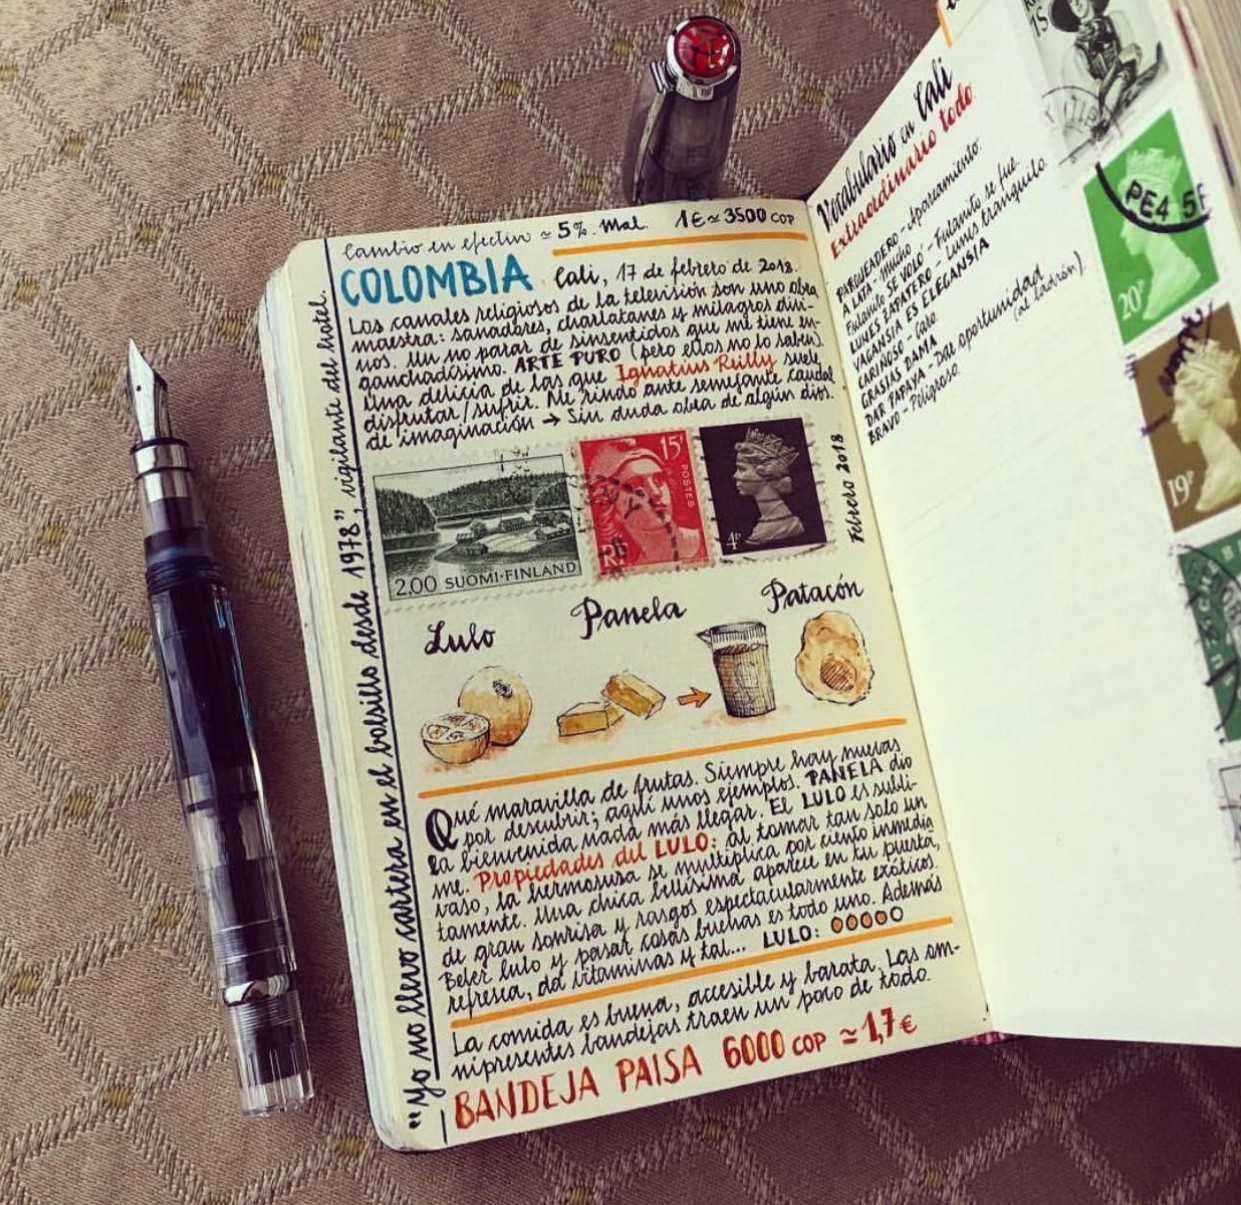 Cambio en efectivo ≃ 5%. Mal. 1€ ≃ 3500 COP
COLOMBIA Cali, 17 de febrero de 2018.
Los canales religiosos de la televisión son uno obra
maestra: sanadores, charlatanes y milagros divi-
nos. Un no parar de sinsentidos que me tiene en-
ganchadísimo. ARTE PURO (pero ellos no lo saben).
Una delicia de las que Ignatius Reilly suele
disfrutar/sufrir. Me rindo ante semejante caudal
de imaginación → Sin duda obra de algún dios.
2,00 SUOMI-FINLAND
15F
POSTES
RF
4P
Febrero 2018
Lulo
Panela
Patacón
Qué maravilla de frutas. Siempre hay nuevas
por descubrir; aquí unos ejemplos. PANELA dio
la bienvenida nada más llegar. El LULO es subli-
me. Propiedades del LULO: al tomar tan solo un
vaso, la hermosusa se multiplica por ciento inmedia
tamente. Una chica bellísima aparece en tu puerta,
de gran sonrisa y rasgos espectacularmente exóticos.
Beber lulo y pasar cosas buenas es todo uno. Además
refresca, da vitaminas y tal... LULO:
La comida es buena, accesible y barata. Las om-
nipresentes bandejas traen un poco de todo.
BANDEJA PAISA 6000 COP ≃ 1,7€
"Yo no llevo cartera en el bolsillo desde 1978", vigilante del hotel.
Vocabulario en Cali
Extraordinario todo
PARQUEADERO - Aparcamiento.
A LATA - Mucho
Fulanito SE VOLÓ - Fulanito se fue.
LUNES ZAPATERO - Lunes tranquilo
VAGANSIA ES ELEGANSIA
CARIÑOSO - Caro.
GRASIAS DAMA
DAR PAPAYA - Dar oportunidad
(al ladrón).
BRAVO - Peligroso.
15
PE4 5
20P
19P